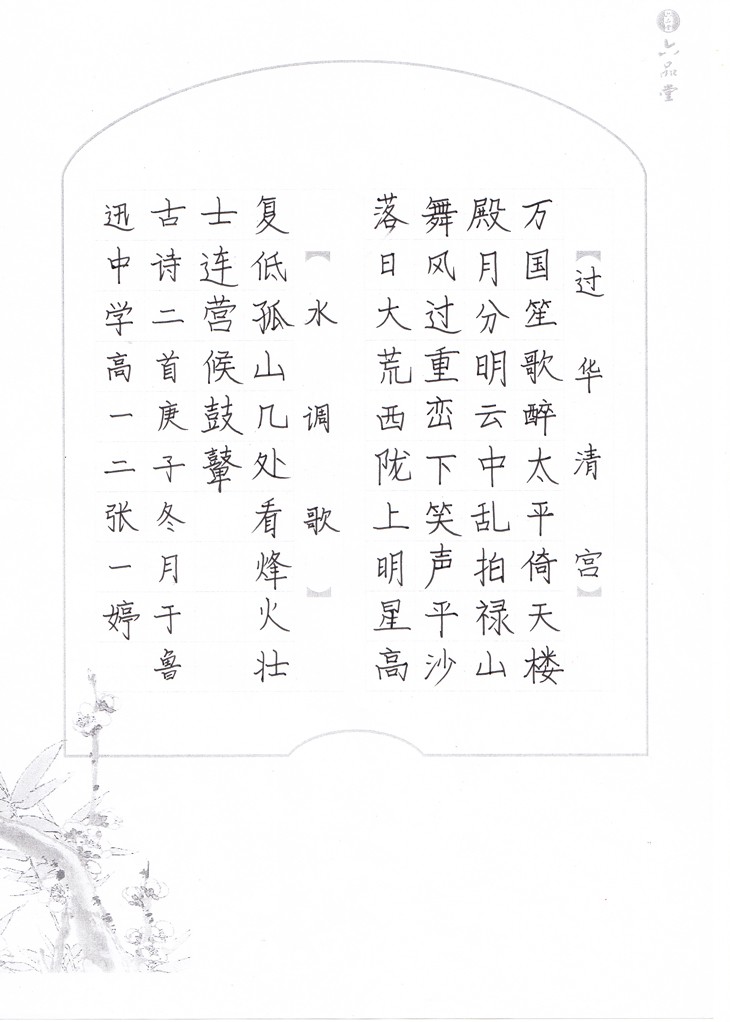 六品堂
【过华清宫】
万国笙歌醉太平倚天楼
殿月分明云中乱拍禄山
舞风过重峦下笑声平沙
落日大荒西陇上明星高
【水调歌】
复低孤山几处看烽火壮
士连营候鼓鼙
古诗二首庚子冬月于鲁
迅中学高一二张一婷